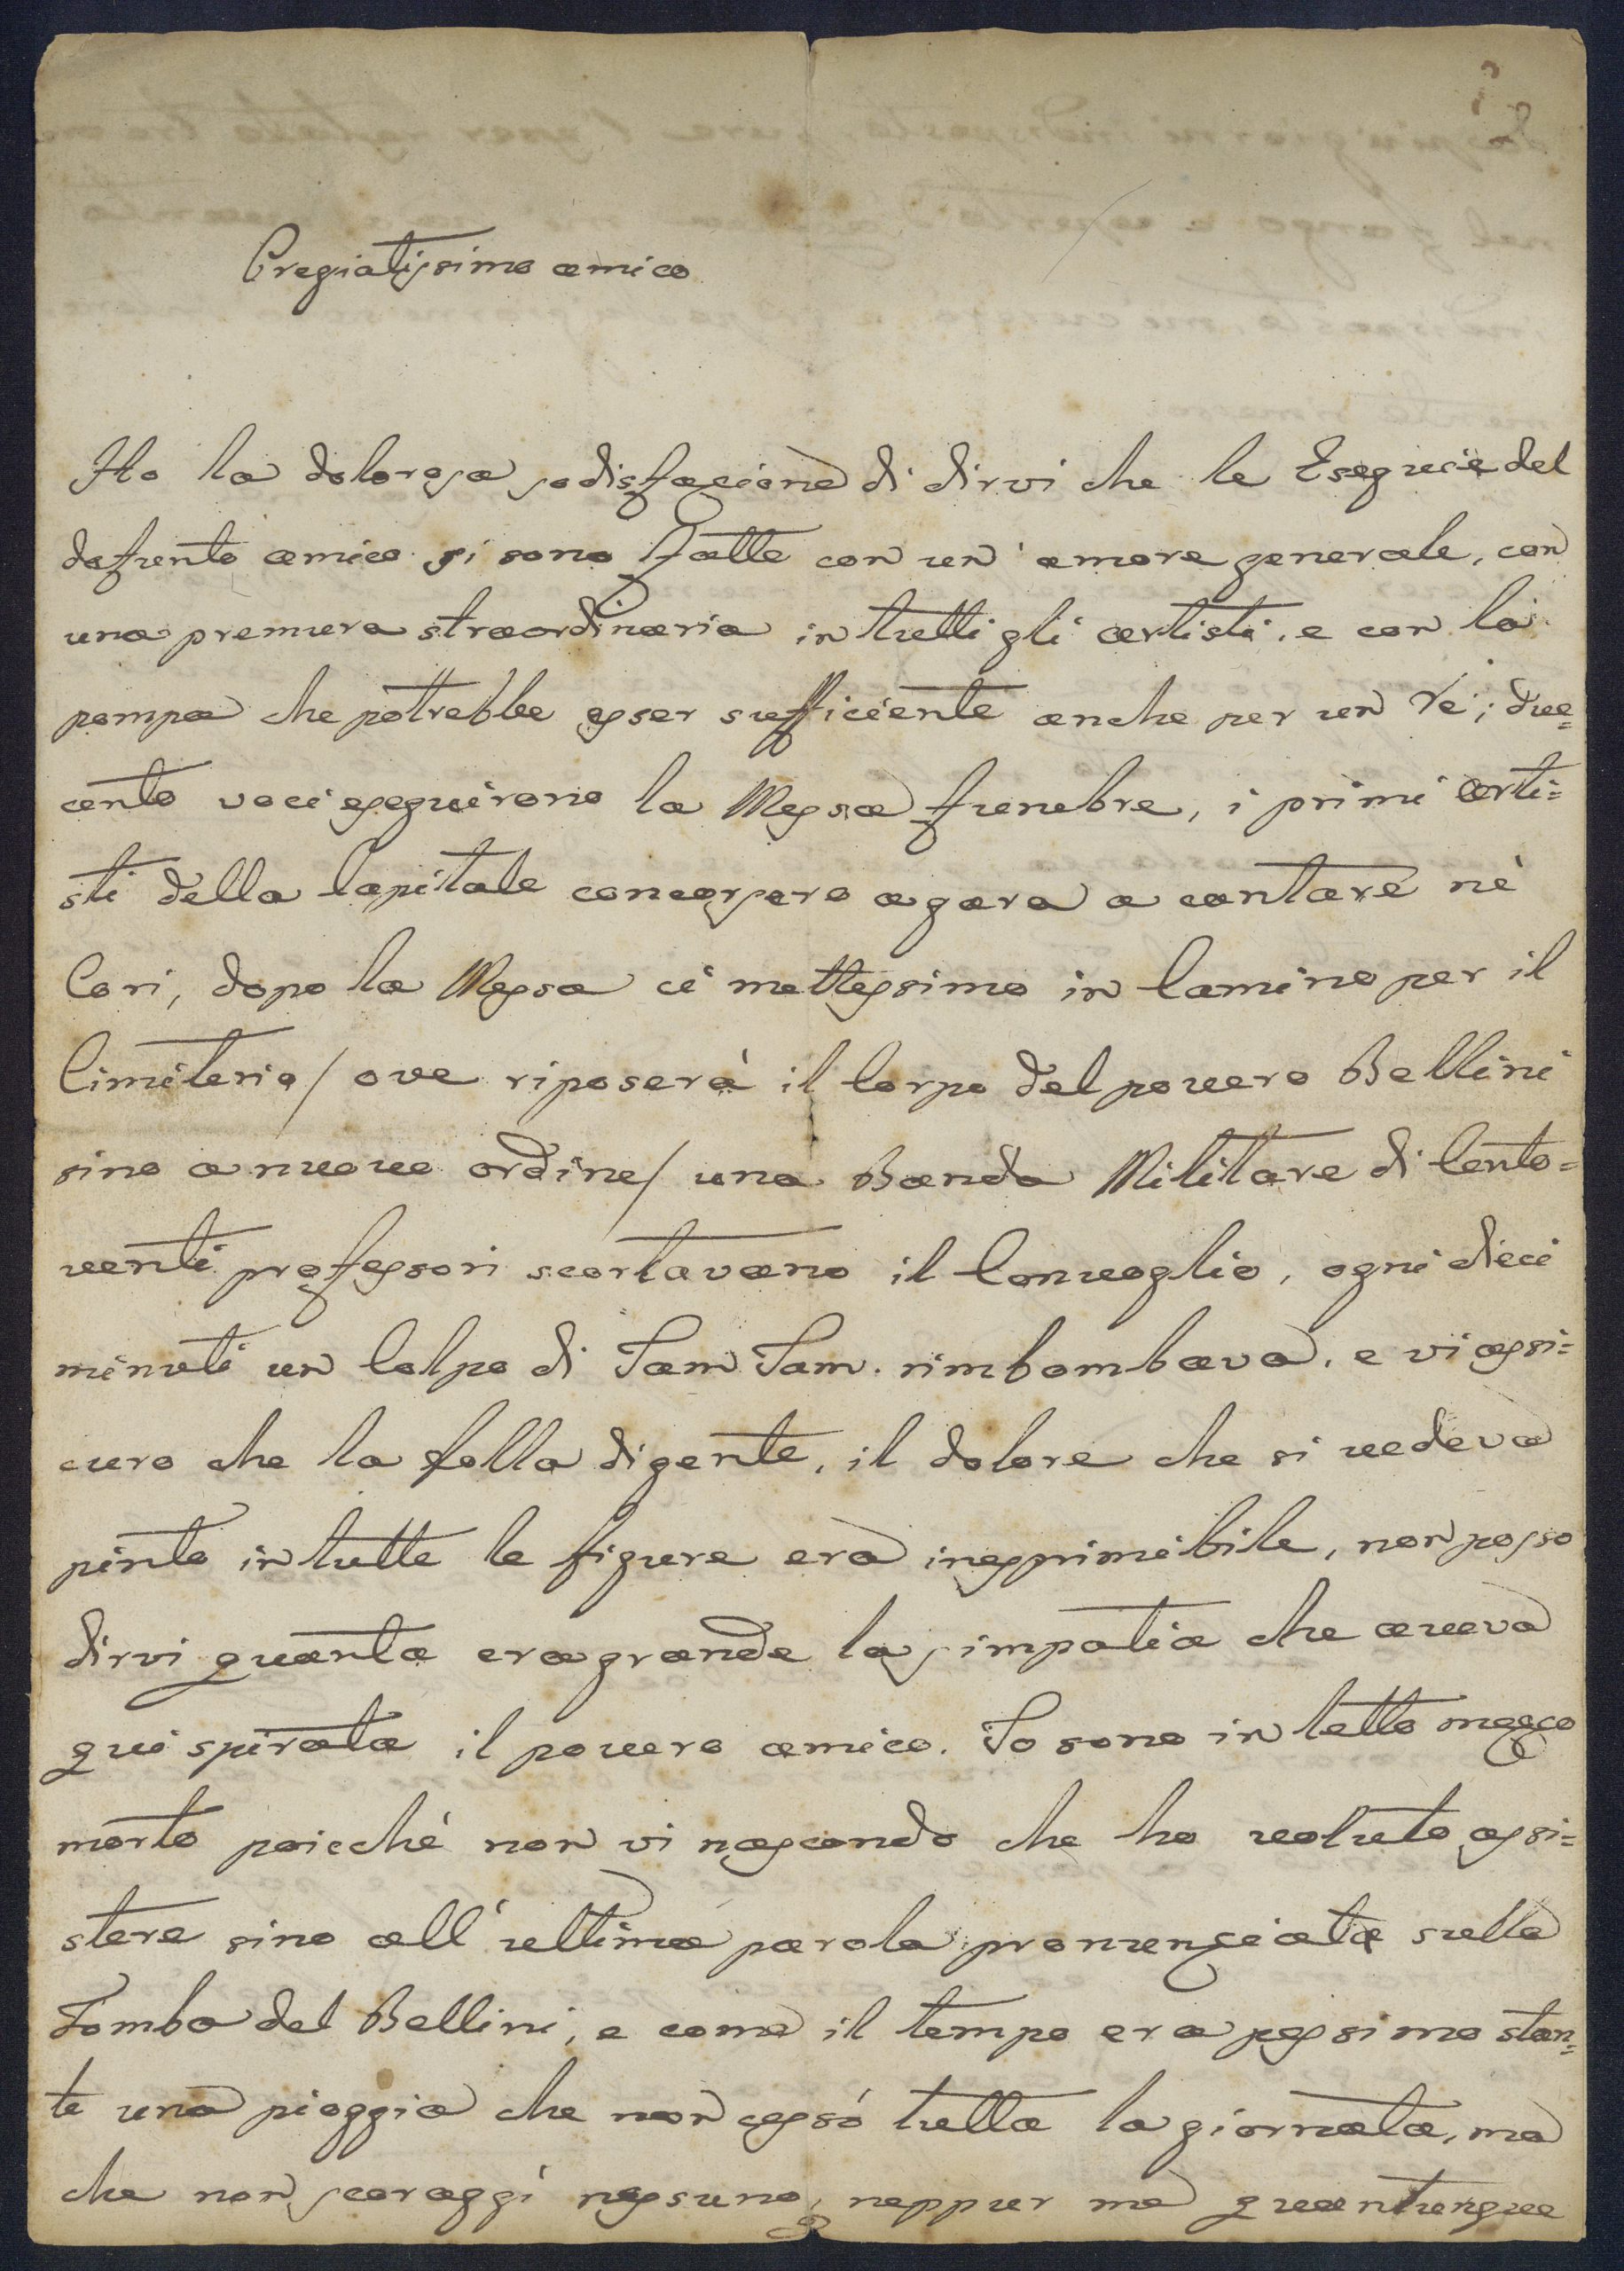 Pregiatissimo amico
Ho la dolorosa sodisfazione di dirvi che le Esequie del
defunto amico si sono fatte con un' amore generale, con
una premura straordinaria in tutti gli artisti, e con la
pompa che potrebbe esser sufficiente anche per un Re; due=
cento voci eseguirono la Messa funebre, i primi arti=
sti della Capitale concorsero a gara a cantare nè
Cori, dopo la Messa ci mettessimo in Camino per il
Cimiterio / ove riposerà il Corpo del povero Bellini
sino a nuovo ordine / una Banda Militare di Cento=
venti professori scortavano il Convoglio, ogni dieci
minuti un Colpo di Tam Tam. rimbombava, e vi assi=
curo che la folla di gente, il dolore che si vedeva
pinto in tutte le figure era inesprimibile, non posso
dirvi quanta era grande la simpatia che aveva
qui spirata il povero amico. Io sono in letto mezzo
morto poicchè non vi nascondo che ho voluto assi=
stere sino all' ultima parola pronunziata sulla
Tomba del Bellini, e come il tempo era pessimo stan=
te una pioggia che non cessò tutta la giornata, ma
che non scoraggì nessuno, neppur me quantunque